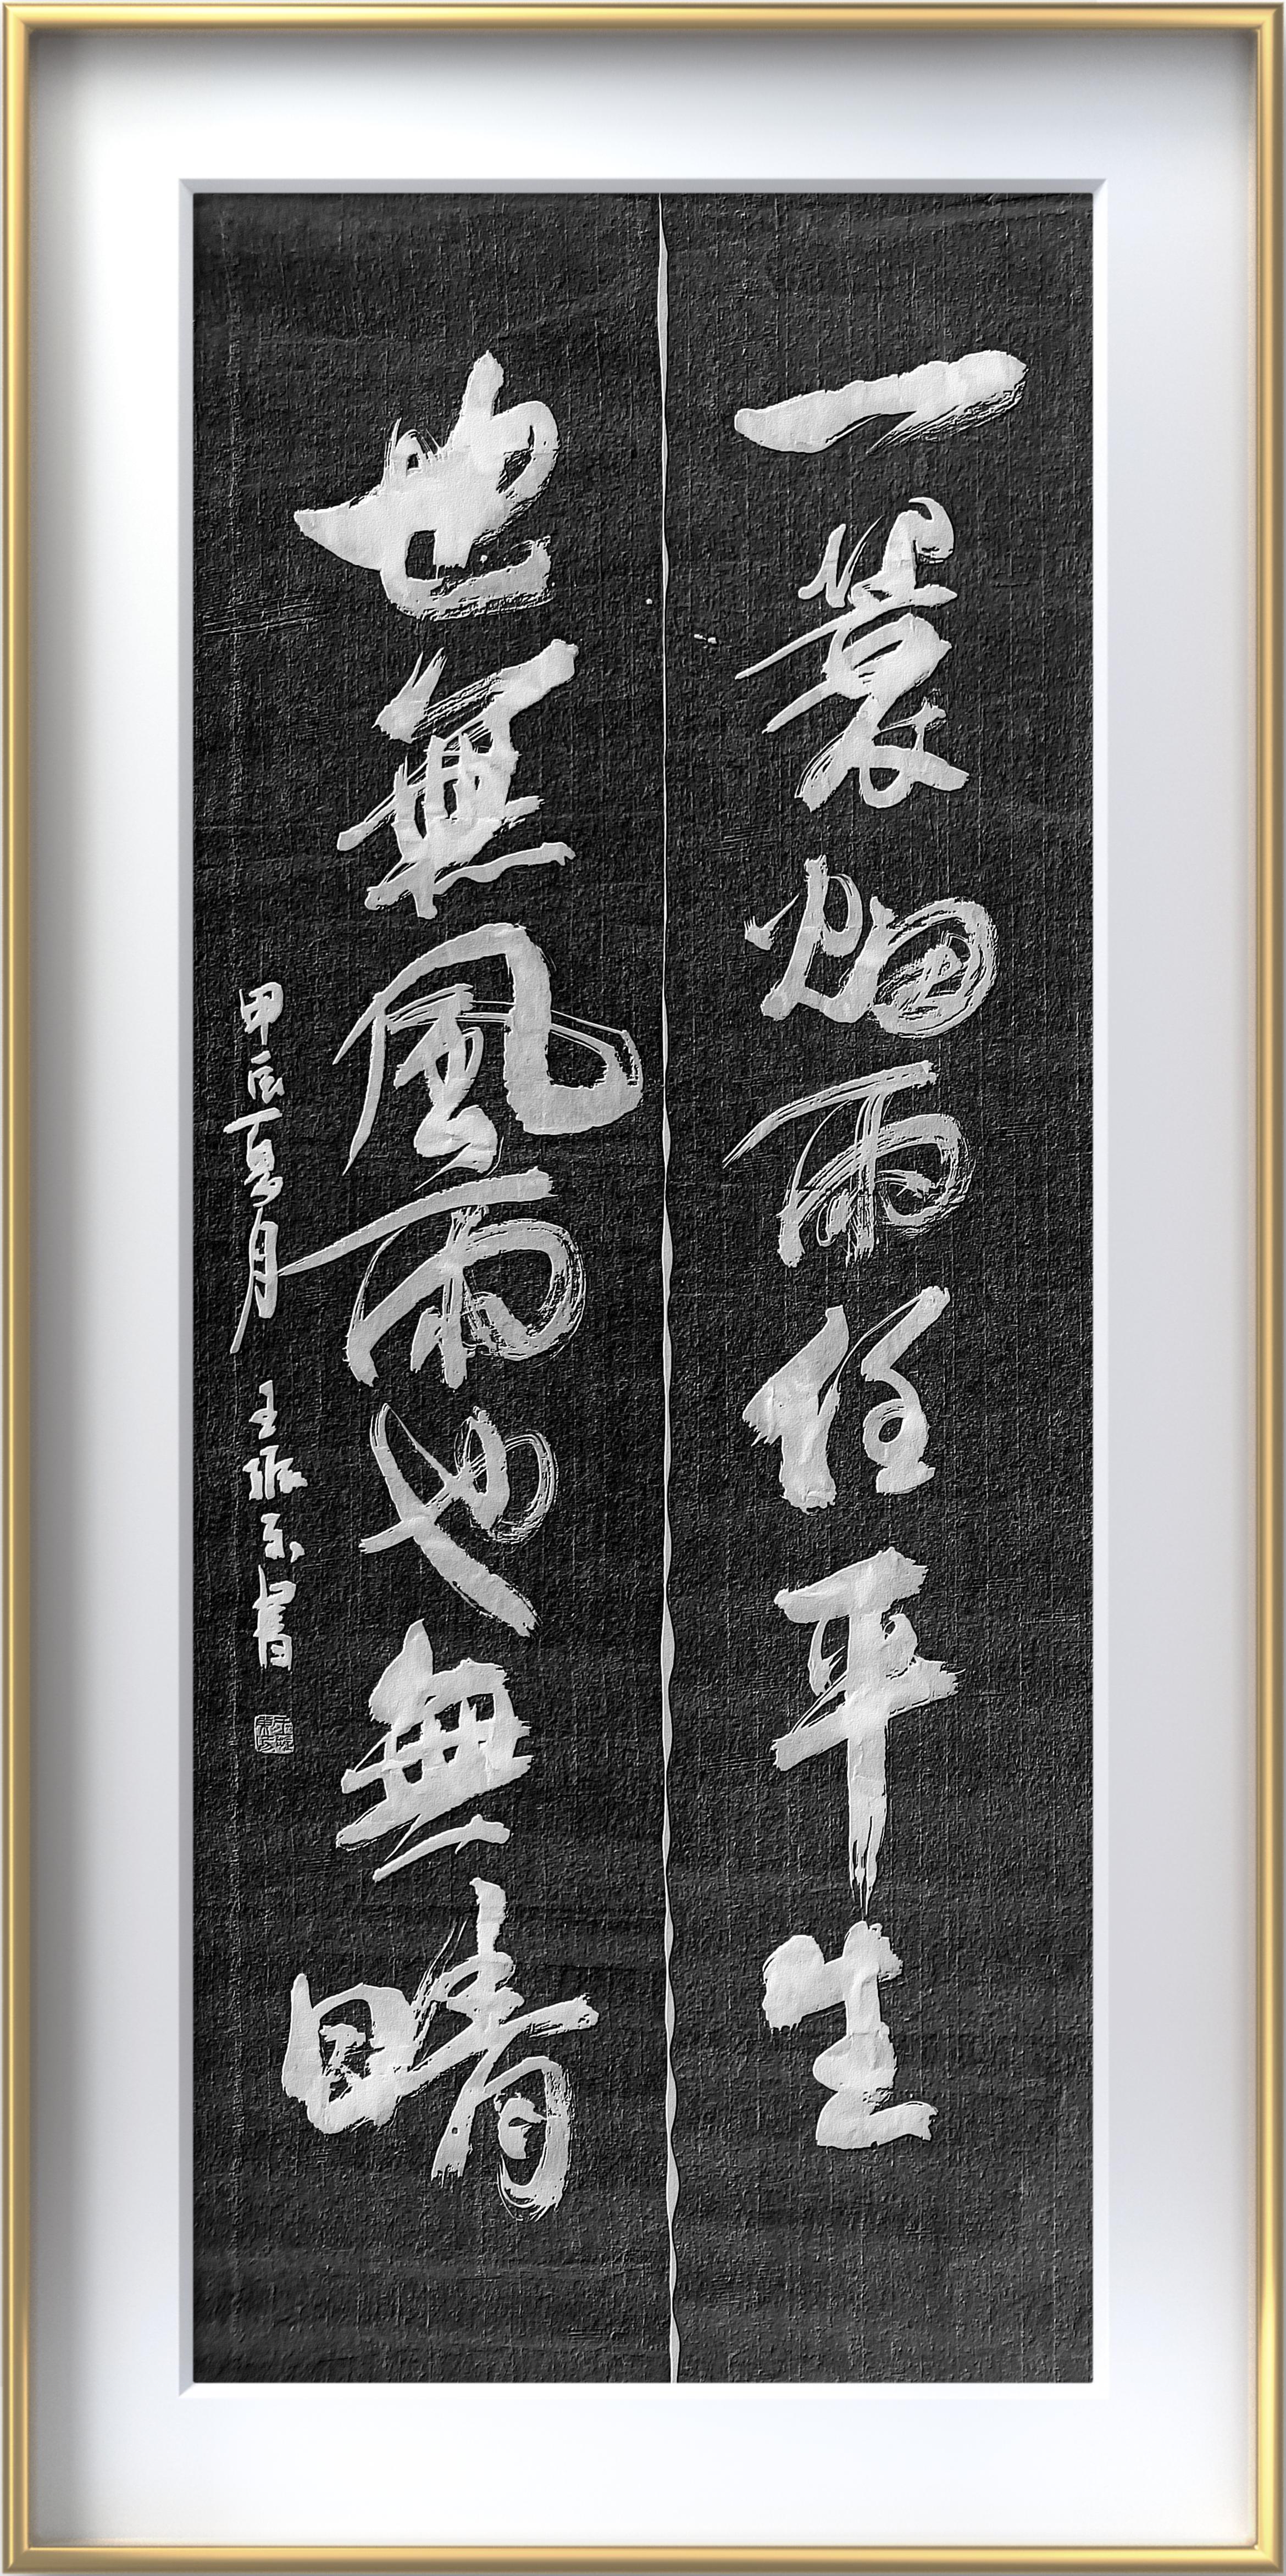 一蓑烟雨任平生
也無風雨也無晴
甲辰夏月 王振东書